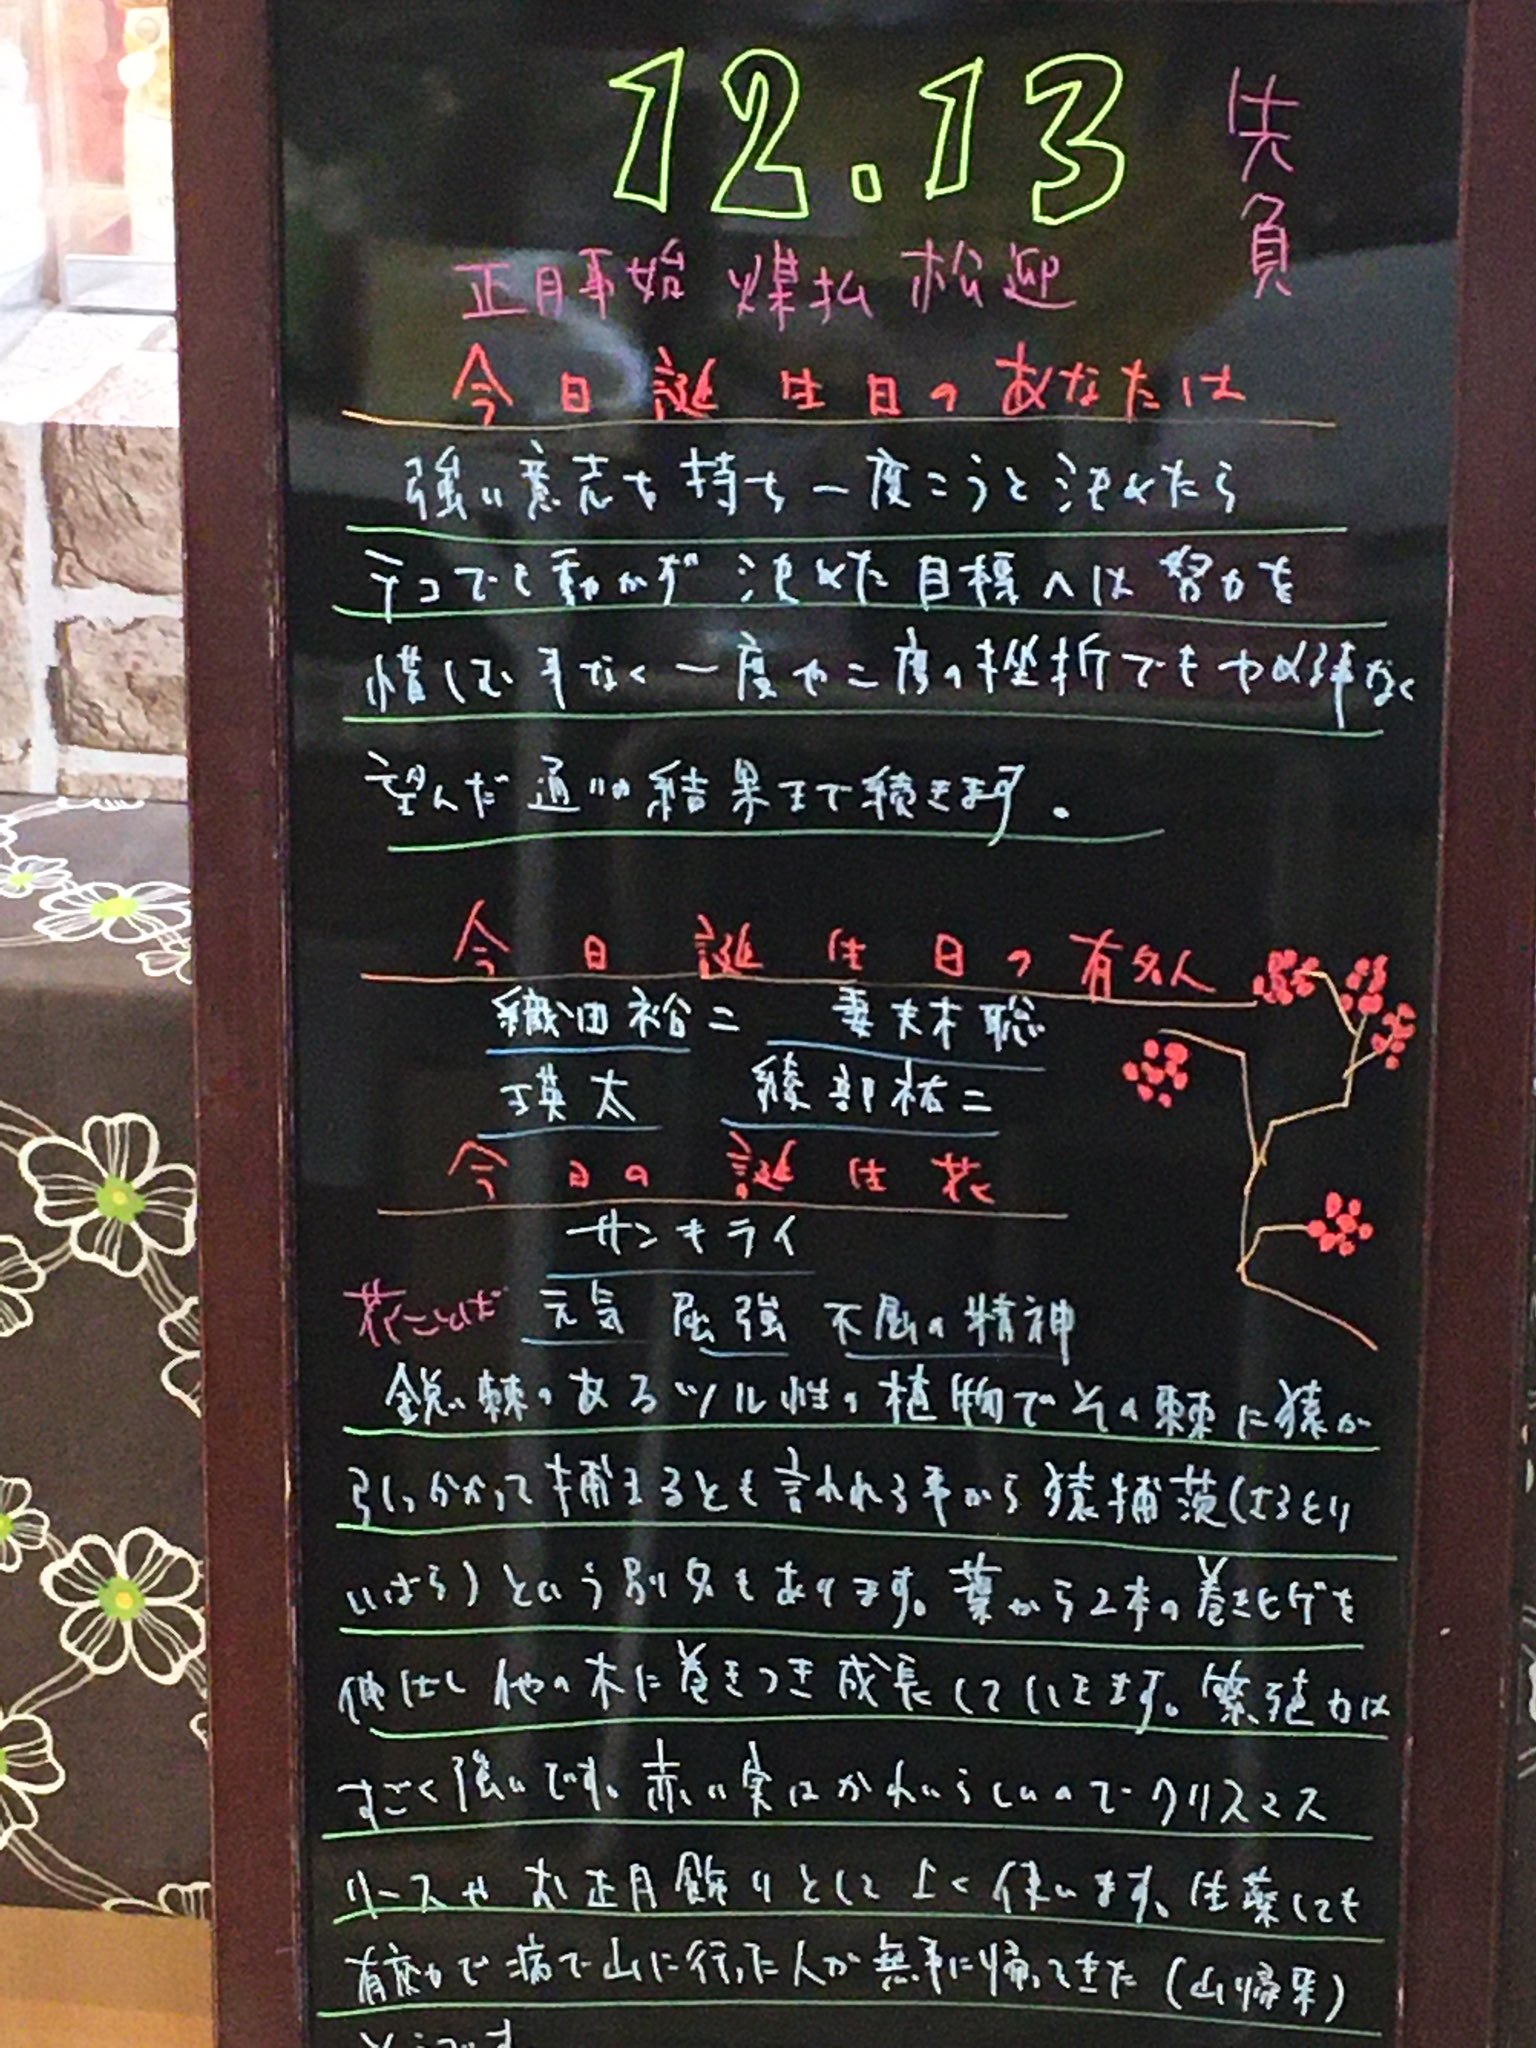 12.13
先負
正月事始 煤払 松迎
今日誕生日のあなたは
強い意志を持ち一度こうと決めたら
テコでも動かず決めた目標へは努力を
惜しむ事なく一度や二度の挫折でもやめる事なく
望んだ通りの結果まで続きます。
今日誕生日の有名人
織田裕二 妻夫木聡
瑛太 綾部祐二
今日の誕生花
サンキライ
花ことば 元気 屈強 不屈の精神
鋭い棘のあるツル性の植物でその棘に猿が
引っかかって捕まるとも言われる事から猿捕茨(さるとり
いばら)という別名もあります。葉から2本の巻きヒゲを
伸ばし他の木に巻きつき成長していきます。繁殖力は
すごく強いです。赤い実はかわいらしいのでクリスマス
リースやお正月飾りとしてよく使います。生薬しても
有度力で病で山に行った人が無事に帰ってきた(山帰来)
そうです